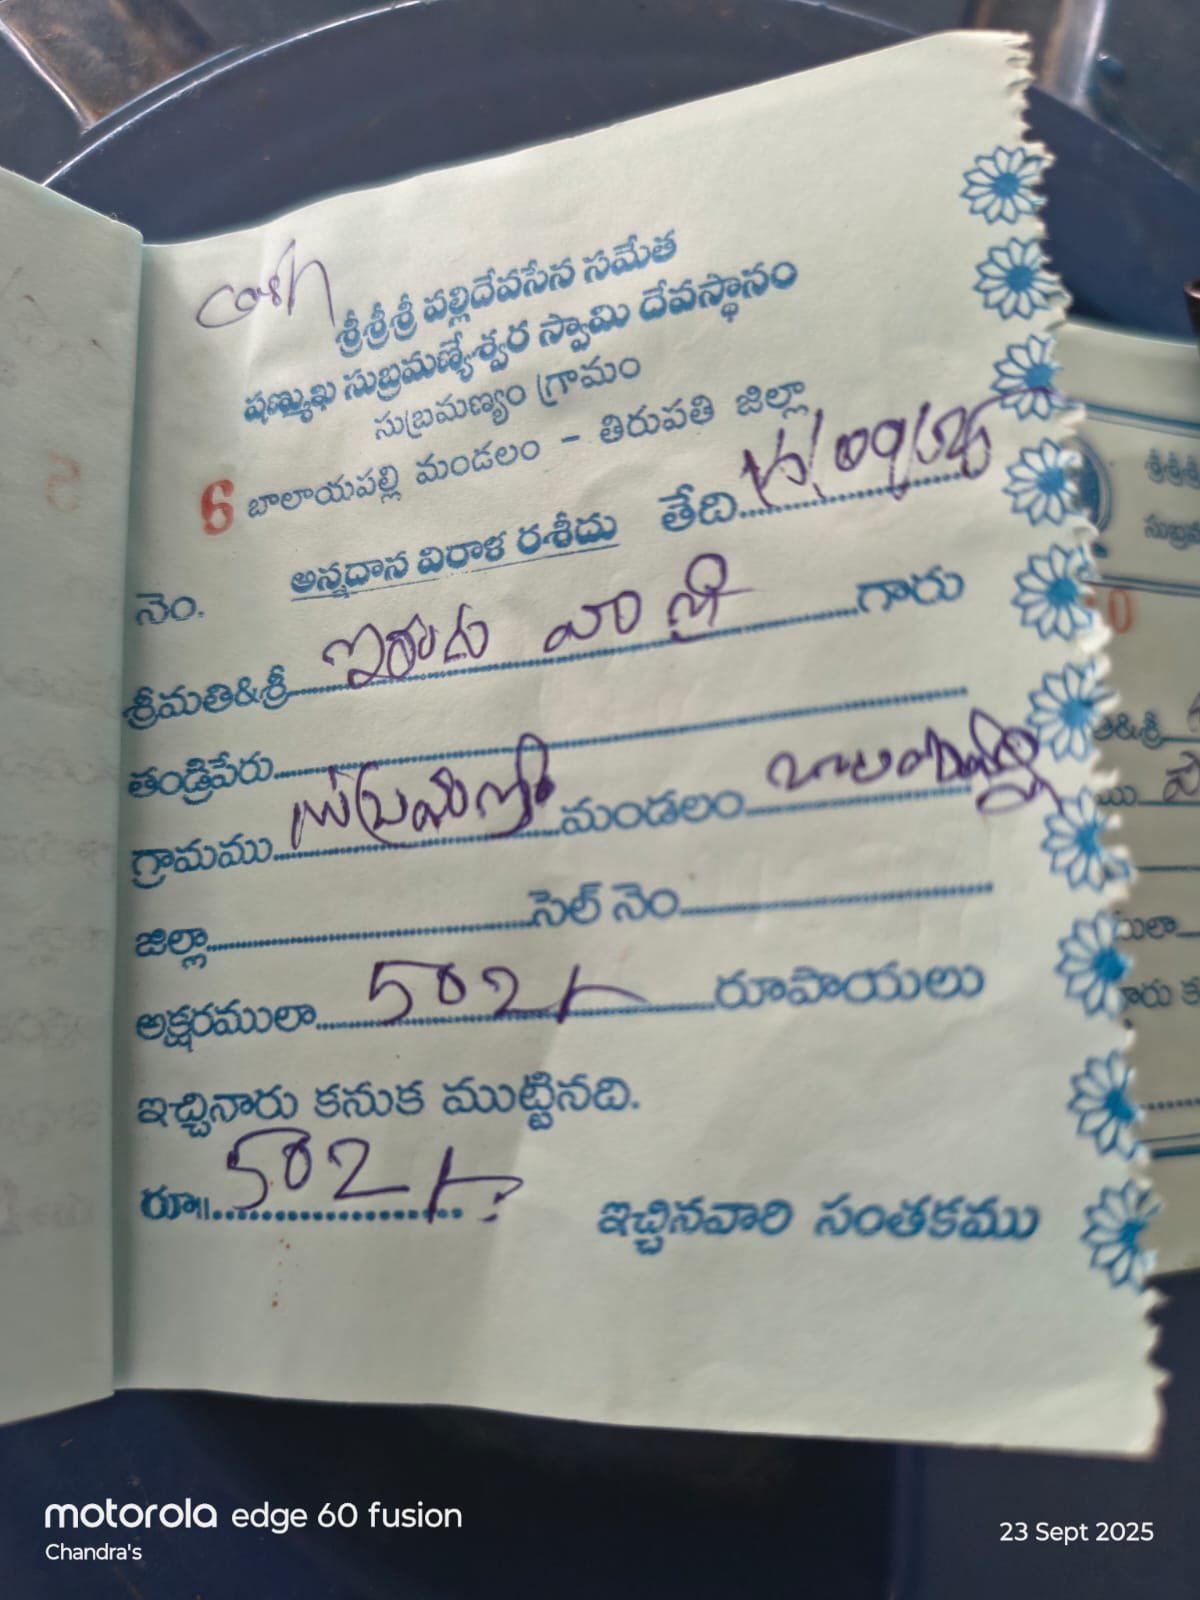 cash
శ్రీశ్రీశ్రీ వల్లిదేవసేన సమేత
షణ్ముఖ సుబ్రమణ్యేశ్వర స్వామి దేవస్థానం
సుబ్రమణ్యం గ్రామం
6 బాలాయపల్లి మండలం - తిరుపతి జిల్లా
నెం. అన్నదాన విరాళ రశీదు తేది
శ్రీమతి&శ్రీ గారు
తండ్రిపేరు
గ్రామము సుబ్రమణ్యం మండలం
జిల్లా సెల్ నెం.
అక్షరములా 502/- రూపాయలు
ఇచ్చినారు కనుక ముట్టినది.
రూ॥ 502/- ఇచ్చినవారి సంతకము
motorola edge 60 fusion
Chandra's
23 Sept 2025